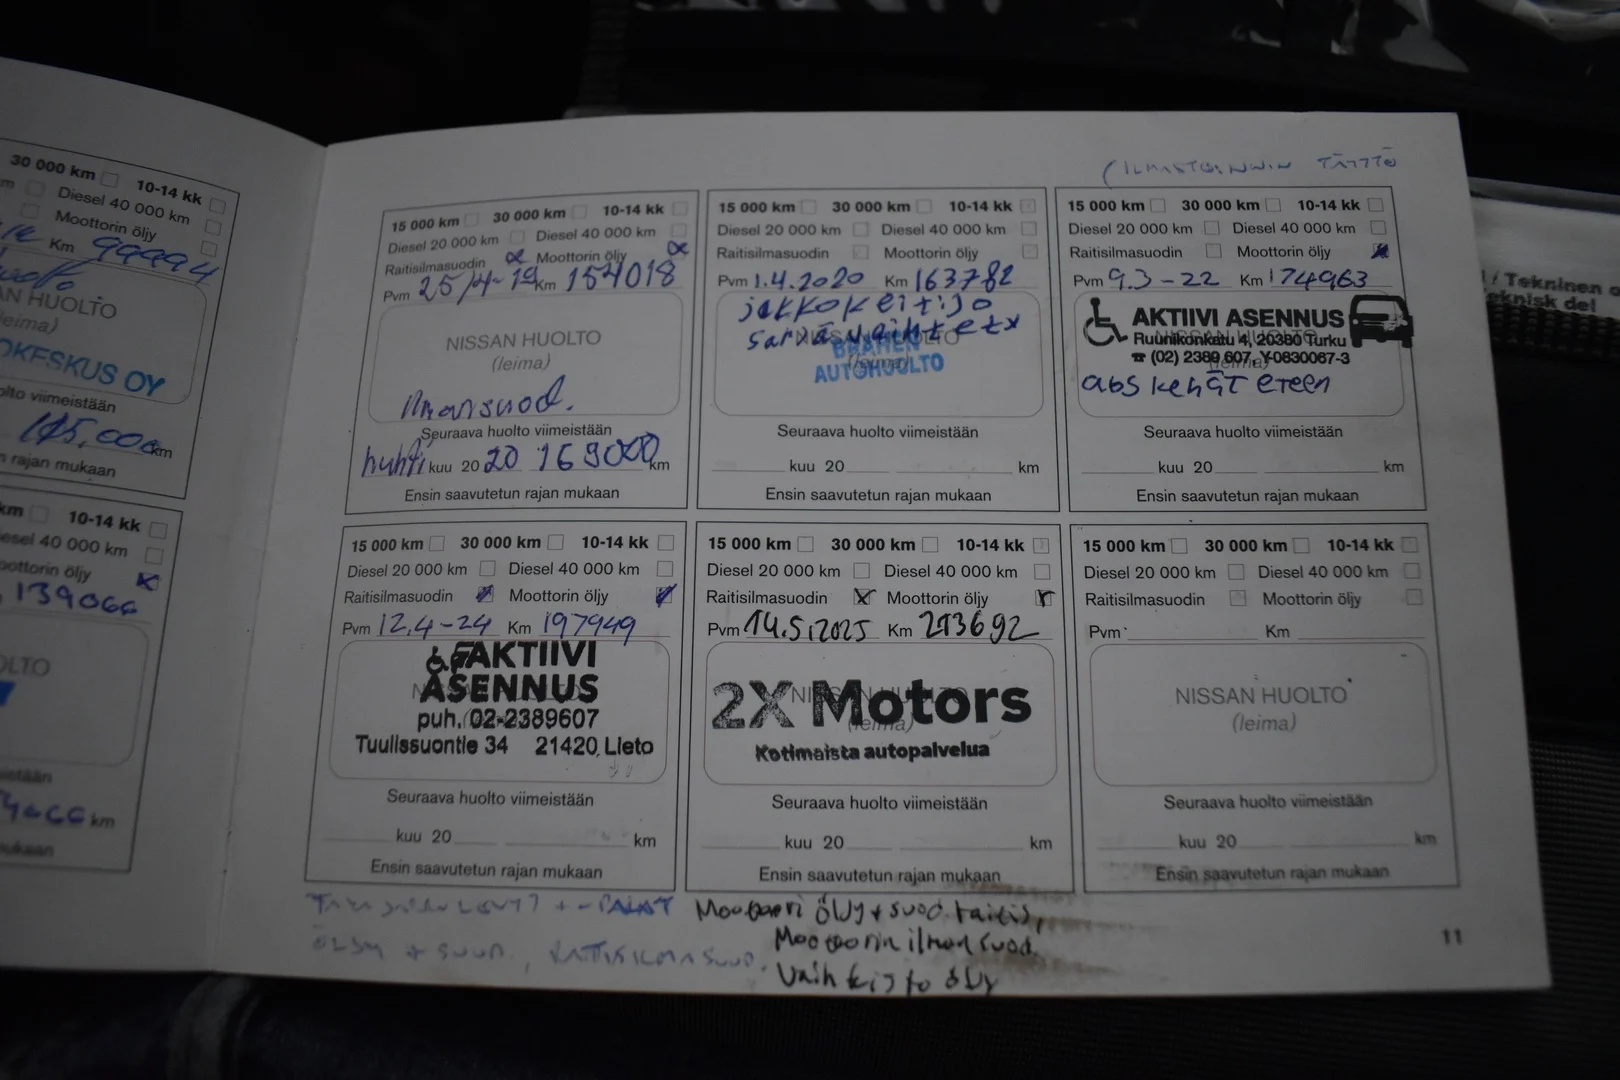 30 000 km 10-14 kk
Diesel 40 000 km
Moottorin öljy
Km 99994
AN HUOLTO
(leima)
OKESKUS OY
olto viimeistään
km
n rajan mukaan
km 10-14 kk
esel 40 000 km
oottorin öljy
139066
OLTO
km
mukaan
15 000 km 30 000 km 10-14 kk
Diesel 20 000 km Diesel 40 000 km
Raitisilmasuodin Moottorin öljy
Pvm 25/4-19 Km 154018
NISSAN HUOLTO
(leima)
Ilmansuod.
Seuraava huolto viimeistään
huhti kuu 20 20 169000 km
Ensin saavutetun rajan mukaan
15 000 km 30 000 km 10-14 kk
Diesel 20 000 km Diesel 40 000 km
Raitisilmasuodin Moottorin öljy
Pvm 1.4.2020 Km 163782
jakkokeitijo
NISSAN HUOLTO
BRAHEN
(leima)
AUTOHUOLTO
Seuraava huolto viimeistään
kuu 20 km
Ensin saavutetun rajan mukaan
(ILMASTOINNIN TÄYTTÖ
15 000 km 30 000 km 10-14 kk
Diesel 20 000 km Diesel 40 000 km
Raitisilmasuodin Moottorin öljy
Pvm 9.3-22 Km 174963
AKTIIVI ASENNUS
NISSAN HUOLTO
Ruunikonkatu 4, 20380 Turku
(leima)
☎ (02) 2389 607, Y-0830067-3
abs kehät eteen
Seuraava huolto viimeistään
kuu 20 km
Ensin saavutetun rajan mukaan
15 000 km 30 000 km 10-14 kk
Diesel 20 000 km Diesel 40 000 km
Raitisilmasuodin Moottorin öljy
Pvm 12.4-24 Km 197949
AKTIIVI
ASENNUS
puh. 02-2389607
Tuulissuontie 34 21420 Lieto
Seuraava huolto viimeistään
kuu 20 km
Ensin saavutetun rajan mukaan
+ -PALAT
ÖLJY + SUOD., RAITISILMASUOD.
15 000 km 30 000 km 10-14 kk
Diesel 20 000 km Diesel 40 000 km
Raitisilmasuodin Moottorin öljy
Pvm 14.5.2025 Km 213692
NISSAN HUOLTO
2X Motors
(leima)
Kotimaista autopalvelua
Seuraava huolto viimeistään
kuu 20 km
Ensin saavutetun rajan mukaan
Moottori öljy + suod. raitis,
Moottorin ilman suod.
Vaihteisto öljy
15 000 km 30 000 km 10-14 kk
Diesel 20 000 km Diesel 40 000 km
Raitisilmasuodin Moottorin öljy
Pvm Km
NISSAN HUOLTO
(leima)
Seuraava huolto viimeistään
kuu 20 km
Ensin saavutetun rajan mukaan
11
/ Tekninen o
eknisk del